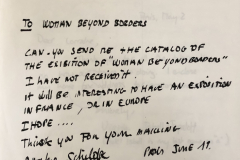 TO WOMAN BEYOND BORDERS
CAN-YOU SEND ME THE CATALOG OF
THE EXIBITION OF "WOMAN BEYOND BOARDERS"
I HAVE NOT RECEIVED IT.
IT WILL BE INTERESTING TO HAVE AN EXPOSITION
IN FRANCE, OR IN EUROPE
I HOPE....
THANK YOU FOR YOUR MAILING
JUNE 11.